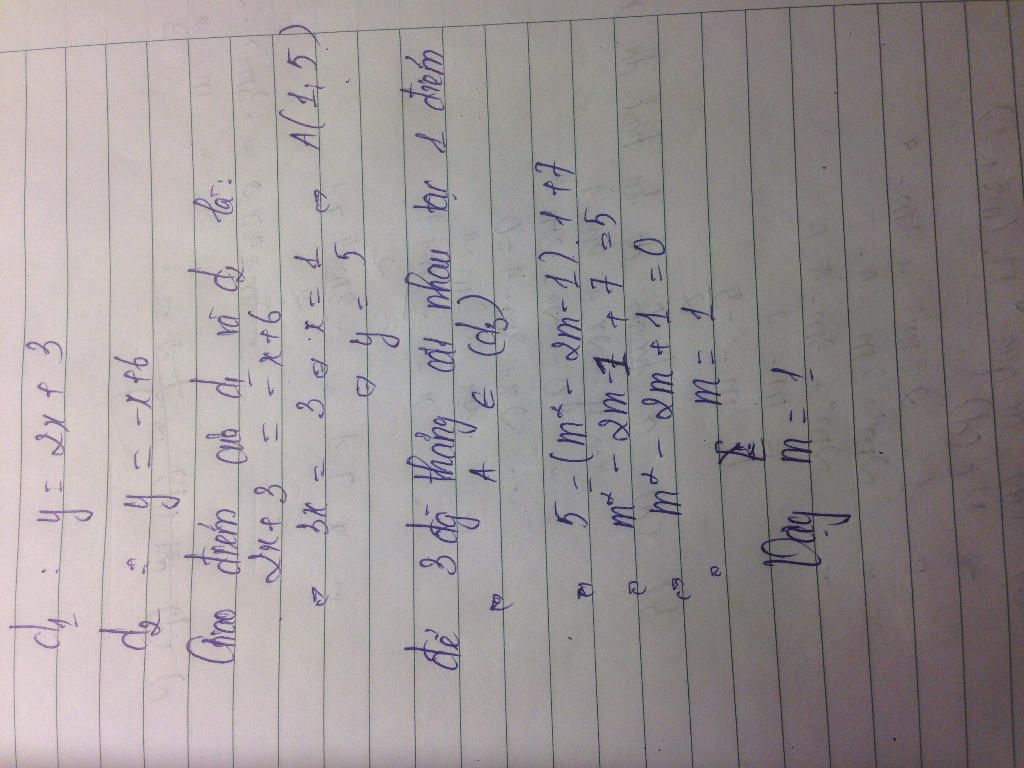 d₁ : y = 2x + 3
d₂ : y = -x+6
Giao điểm của d₁ và d₂ là:
2x+3 = -x+6
⇔ 3x = 3 ⇔ x = 1 ⇔ A(1,5)
⇔ y = 5
để 3 đg thẳng cắt nhau tại 1 điểm
⇔ A ∈ (d₃)
⇔ 5 = (m² - 2m - 1).1 +7
⇔ m² - 2m - 1 + 7 = 5
⇔ m² - 2m + 1 = 0
⇔ m = 1
Vậy m = 1